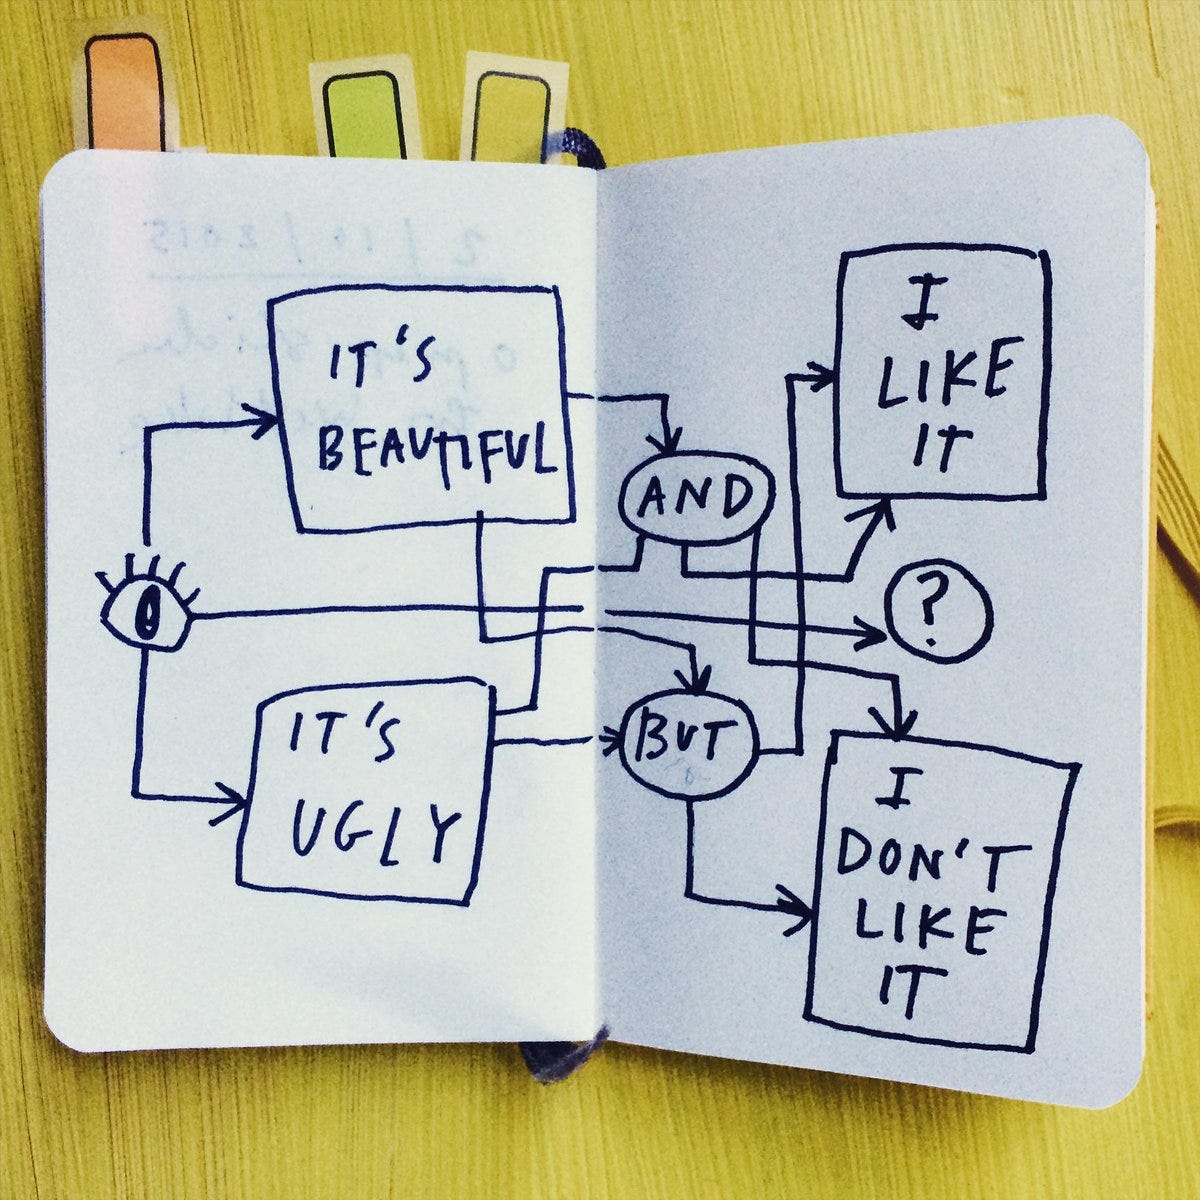 IT'S
BEAUTIFUL
IT'S
UGLY
AND
BUT
I
LIKE
IT
?
I
DON'T
LIKE
IT